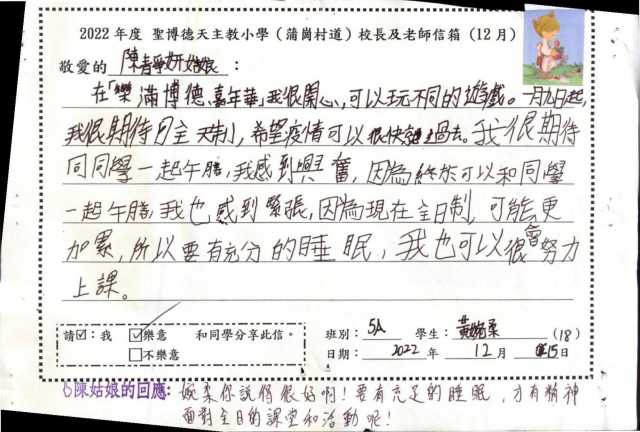 2022 年度 聖博德天主教小學（蒲崗村道）校長及老師信箱（12 月）
敬愛的 陳青妍姑娘 ：
在「樂滿博德嘉年華」我很開心，可以玩不同的遊戲。一月九日起，
我很期待全日制，希望疫情可以很快過去。我很期待
同同學一起午膳，我感到興奮，因為終於可以和同學
一起午膳，我也感到緊張，因為現在全日制，可能更
加累，所以要有充分的睡眠，我也可以很會努力
上課。
請☑：我 ☑樂意 和同學分享此信。
□不樂意
班別： 5A 學生： 黃婉柔 (18)
日期： 2022 年 12 月 15 日
陳姑娘的回應: 婉柔你說得很好啊！要有充足的睡眠，才有精神
面對全日的課堂和活動呢！